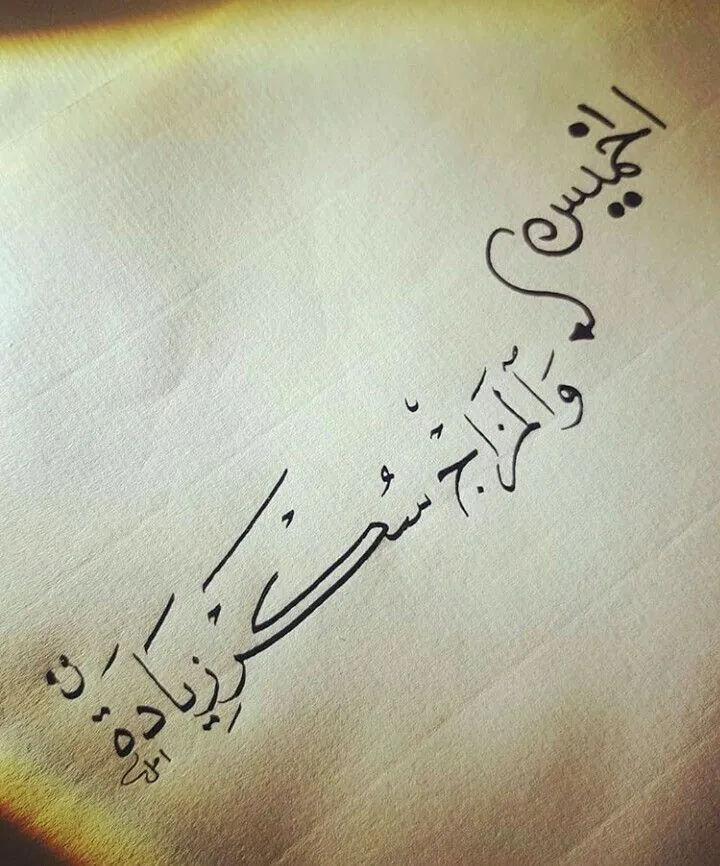 الخميس
وَالمزاج سُكْر زِيَادة